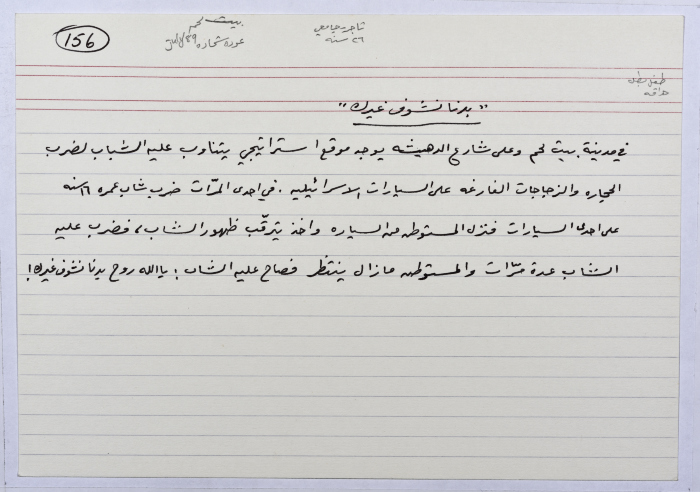 156
بيت لحم
عودة شحاده July/89
تاجر جامعي
٢٦ سنه
طفل بطل
"بدنا نشوف غيرك"
في مدينة بيت لحم وعلى شارع الدهيشه يوجد موقع استراتيجي يتناوب عليه الشباب لضرب
الحجاره والزجاجات الفارغه على السيارات الاسرائيليه. في احدى المرّات ضرب شاب عمره ١٦ سنه
على احدى السيارات فنزل المستوطن من السياره واخذ يترقّب ظهور الشاب، فضرب عليه
الشاب عدة مرّات والمستوطن مازال ينتظر فصاح عليه الشاب: ياالله روح بدنا نشوف غيرك!